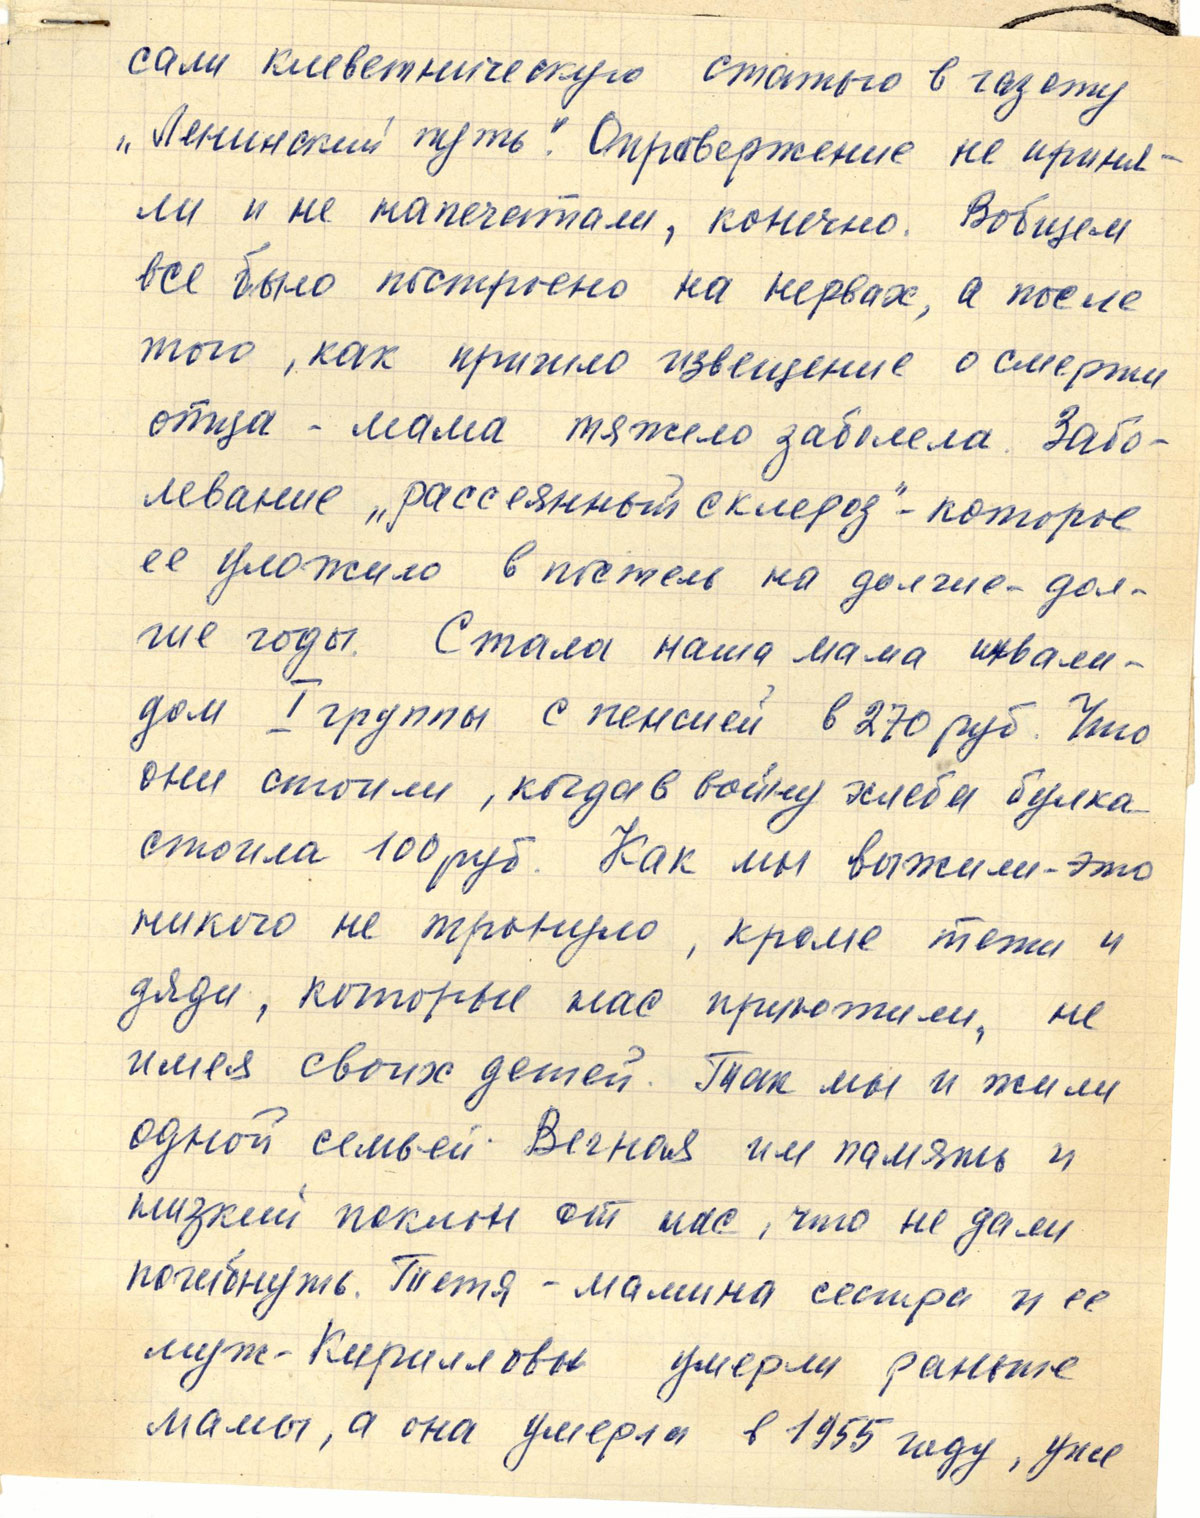 сали клеветническую статью в газету
„Ленинский путь". Опровержение не приня-
ли и не напечатали, конечно. Вобщем
все было построено на нервах, а после
того, как пришло извещение о смерти
отца - мама тяжело заболела. Забо-
левание „рассеянный склероз" - которое
ее уложило в постель на долгие - дол-
гие годы. Стала наша мама инвали-
дом I группы с пенсией в 270 руб. Что
они стоили, когда в войну хлеба булка
стоила 100 руб. Как мы выжили - это
никого не тронуло, кроме тети и
дяди, которые нас приютили, не
имея своих детей. Так мы и жили
одной семьей. Вечная им память и
низкий поклон от нас, что не дали
погибнуть. Тетя - мамина сестра и ее
муж - Кирилловы умерли раньше
мамы, а она умерла в 1955 году, уже